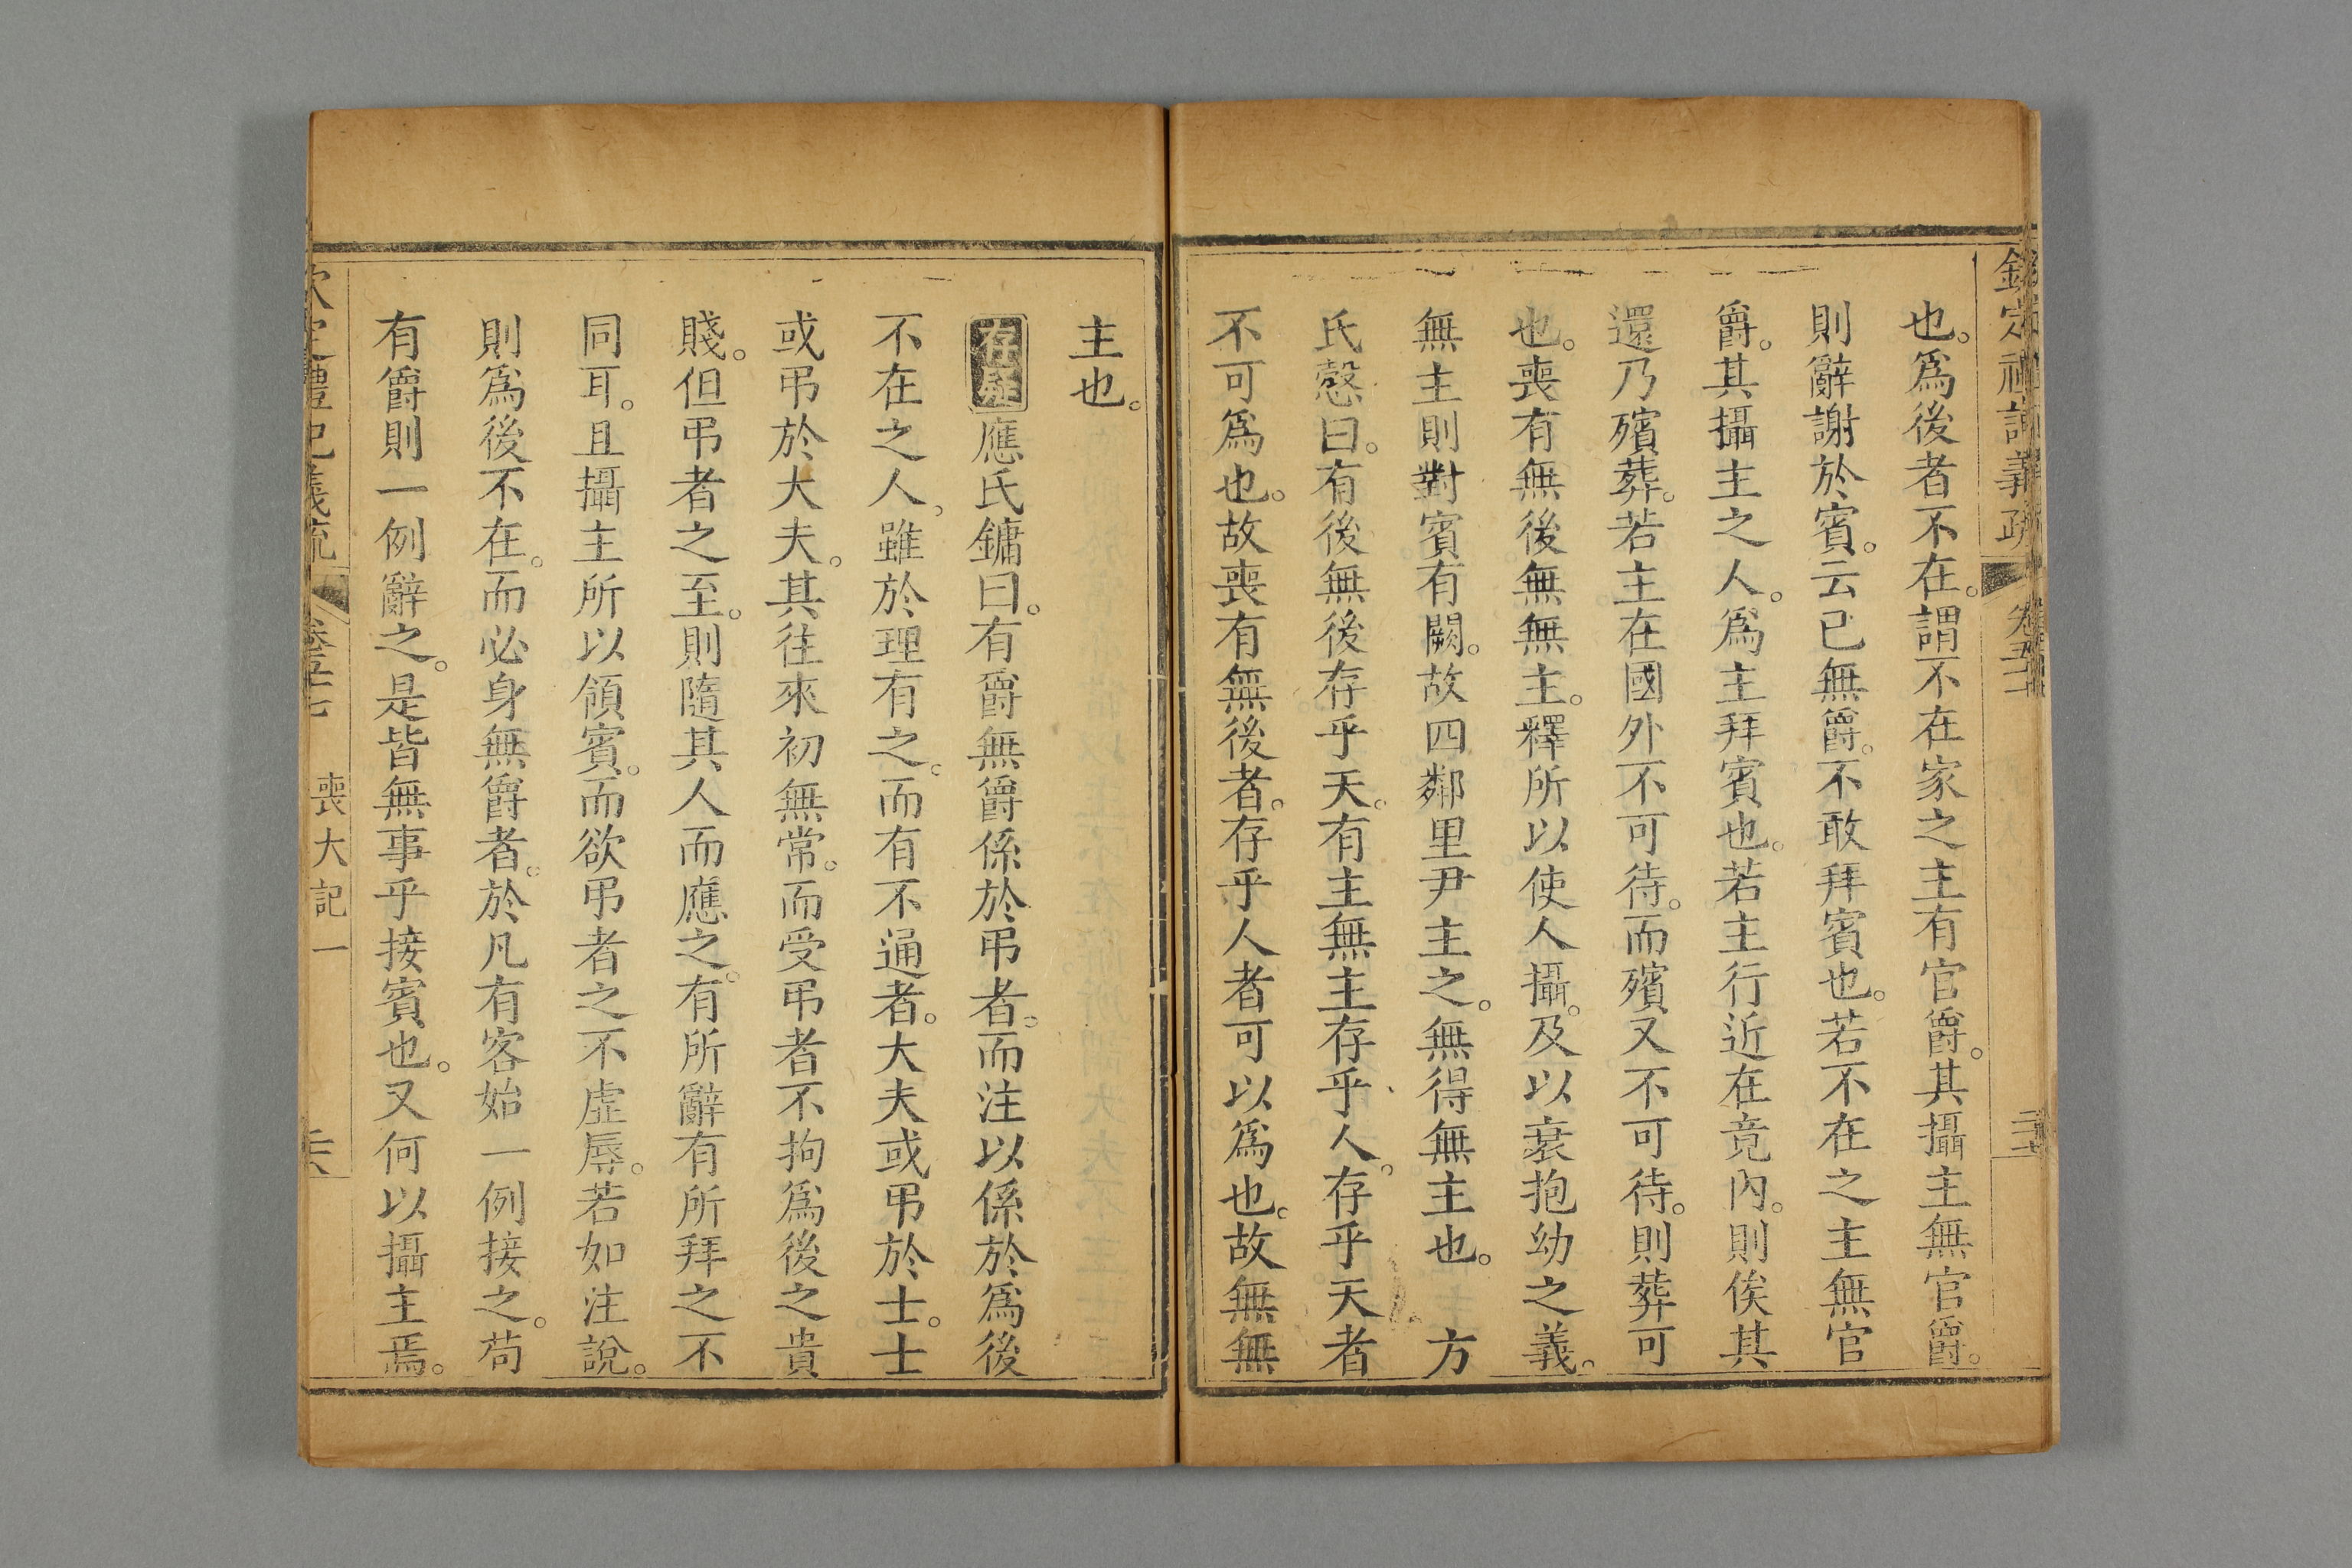 也。爲後者不在。謂不在家之主有官爵。其攝主無官爵。
則辭謝於賓。云己無爵。不敢拜賓也。若不在之主無官
爵。其攝主之人。爲主拜賓也。若主行近在竟內。則俟其
還乃殯葬。若主在國外不可待。而殯又不可待。則葬可
也。喪有無後無無主。釋所以使人攝。及以衰抱幼之義。
無主則對賓有闕。故四鄰里尹主之。無得無主也。 方
氏慤曰。有後無後存乎天。有主無主存乎人。存乎天者
不可爲也。故喪有無後者。存乎人者可以爲也。故無無
主也。
存疑 應氏鏞曰。有爵無爵係於弔者。而注以係於爲後
不在之人。雖於理有之。而有不通者。大夫或弔於士。士
或弔於大夫。其往來初無常。而受弔者不拘爲後之貴
賤。但弔者之至。則隨其人而應之。有所辭有所拜之不
同耳。且攝主所以領賓。而欲弔者之不虛辱。若如注說。
則爲後不在。而必身無爵者。於凡有客始一例接之。苟
有爵則一例辭之。是皆無事乎接賓也。又何以攝主焉。
欽定禮記義疏 卷五十七 喪大記一